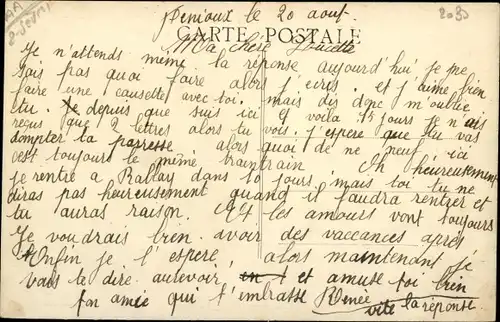 AA
2-Sevres
Périoux le 20 aout.
2030
CARTE POSTALE
Ma chère Poucette
Je n'attends même la réponse aujourd'hui je ne
sais pas quoi faire alors j'écris. et j'aime bien
faire une causette avec toi. mais dis donc m'oublie
tu. depuis que suis ici et voila 15 jours je n'ais
reçus que 2 lettres alors tu vois. j'espere que tu vas
dompter ta paresse alors quoi de ne neuf, ici
c'est toujours le même traintrain Oh heureusement
je rentre a Ballay dans 10 jours, mais toi tu ne
diras pas heureusement quand il faudra rentrer et
tu auras raison. Et les amours vont toujours
Je voudrais bien avoir des vaccances après
Enfin je l'espere alors maintenant je
vais te dire aurevoir, et amuse toi bien
ton amie qui t'embrasse Renée
vite la réponse